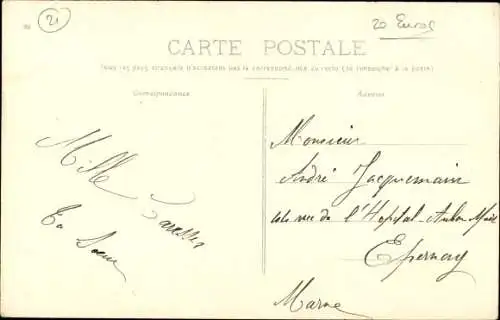 21
20 Euros
CARTE POSTALE
Tous les pays étrangers n'acceptent pas la correspondance au recto (se renseigner à la poste)
Correspondance
Adresse
Mille
Caresses
Ta Soeur
Monsieur
André Jacquemain
rue de l'Hopital-Auban Moët
Epernay
Marne